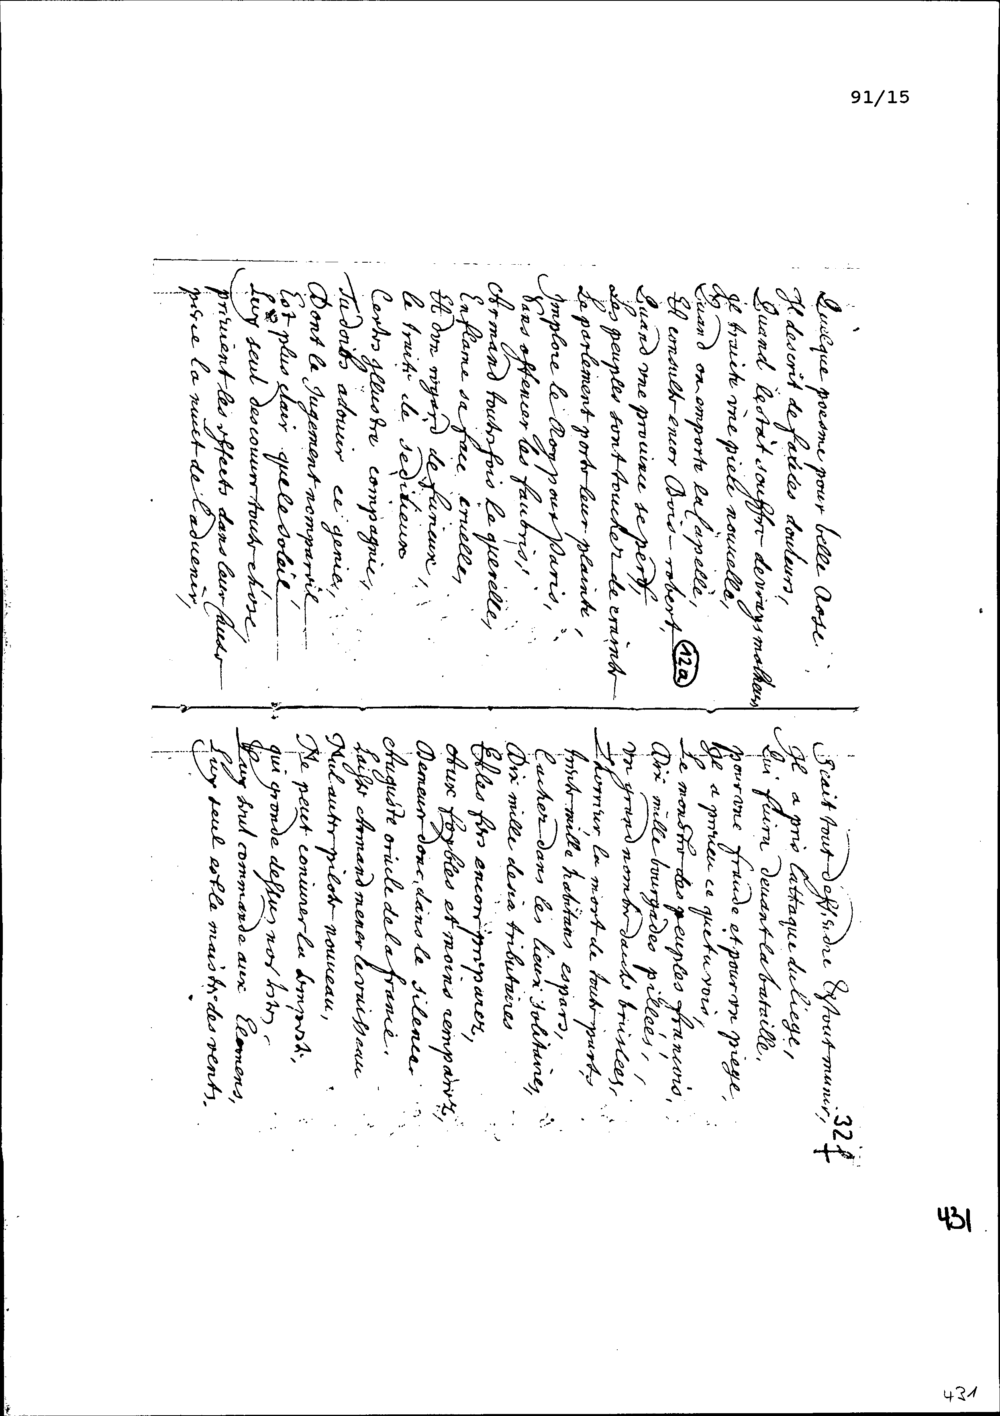 91/15
Quelque poesme pour belle Rose.
Il descrit de faictes douleurs,
Quand l'estat souffre de vrays malheurs
Il traite une piece nouvelle,
Quand on emporte la Capelle,
Et consulte encor Bois-robert,
Quand une province se perd,
12a
Les peuples sont touchez de crainte
Le parlement porte leur plainte,
Implore le Roy pour Paris,
Sans offencer les favoris,
Armand toutefois le querelle,
Enflame sa face cruelle,
Et d'un regard de furieux,
le traite de seditieux
Certes Illustre compagnie,
Tu dois adoucir ce genie,
Dont le Jugement nompareil
Est plus clair que le soleil
Luy seul descouvre toute chose,
previent les effects dans leur cause
perce la nuict de l'advenir,
Scait tout deffendre Et tout munir,
32
Il a pris l'attaque du liege,
Qui fuira devant la bataille.
pour une fraude et pour un piege,
Il a preveu ce que tu vois,
Le monstre des peuples francois,
Dix mille bourgades pillées,
un grand nombre bruslees,
L'horreur la mort de toute parts
trente mille habitans espars,
Cachez dans les lieux solitaires,
Dix mille desia tributaires
Et les fers encor preparez,
Aux foybles et moins remparez,
Demeure donc, dans le silence
Auguste oracle de la france.
Laisse Armand mener le vaisseau
Nul autre pilote nouveau,
Ne peut coniurer la tempeste,
qui gronde dessus nos testes,
Luy seul commande aux Elemens,
Luy seul est le maistre des vents.
431
431